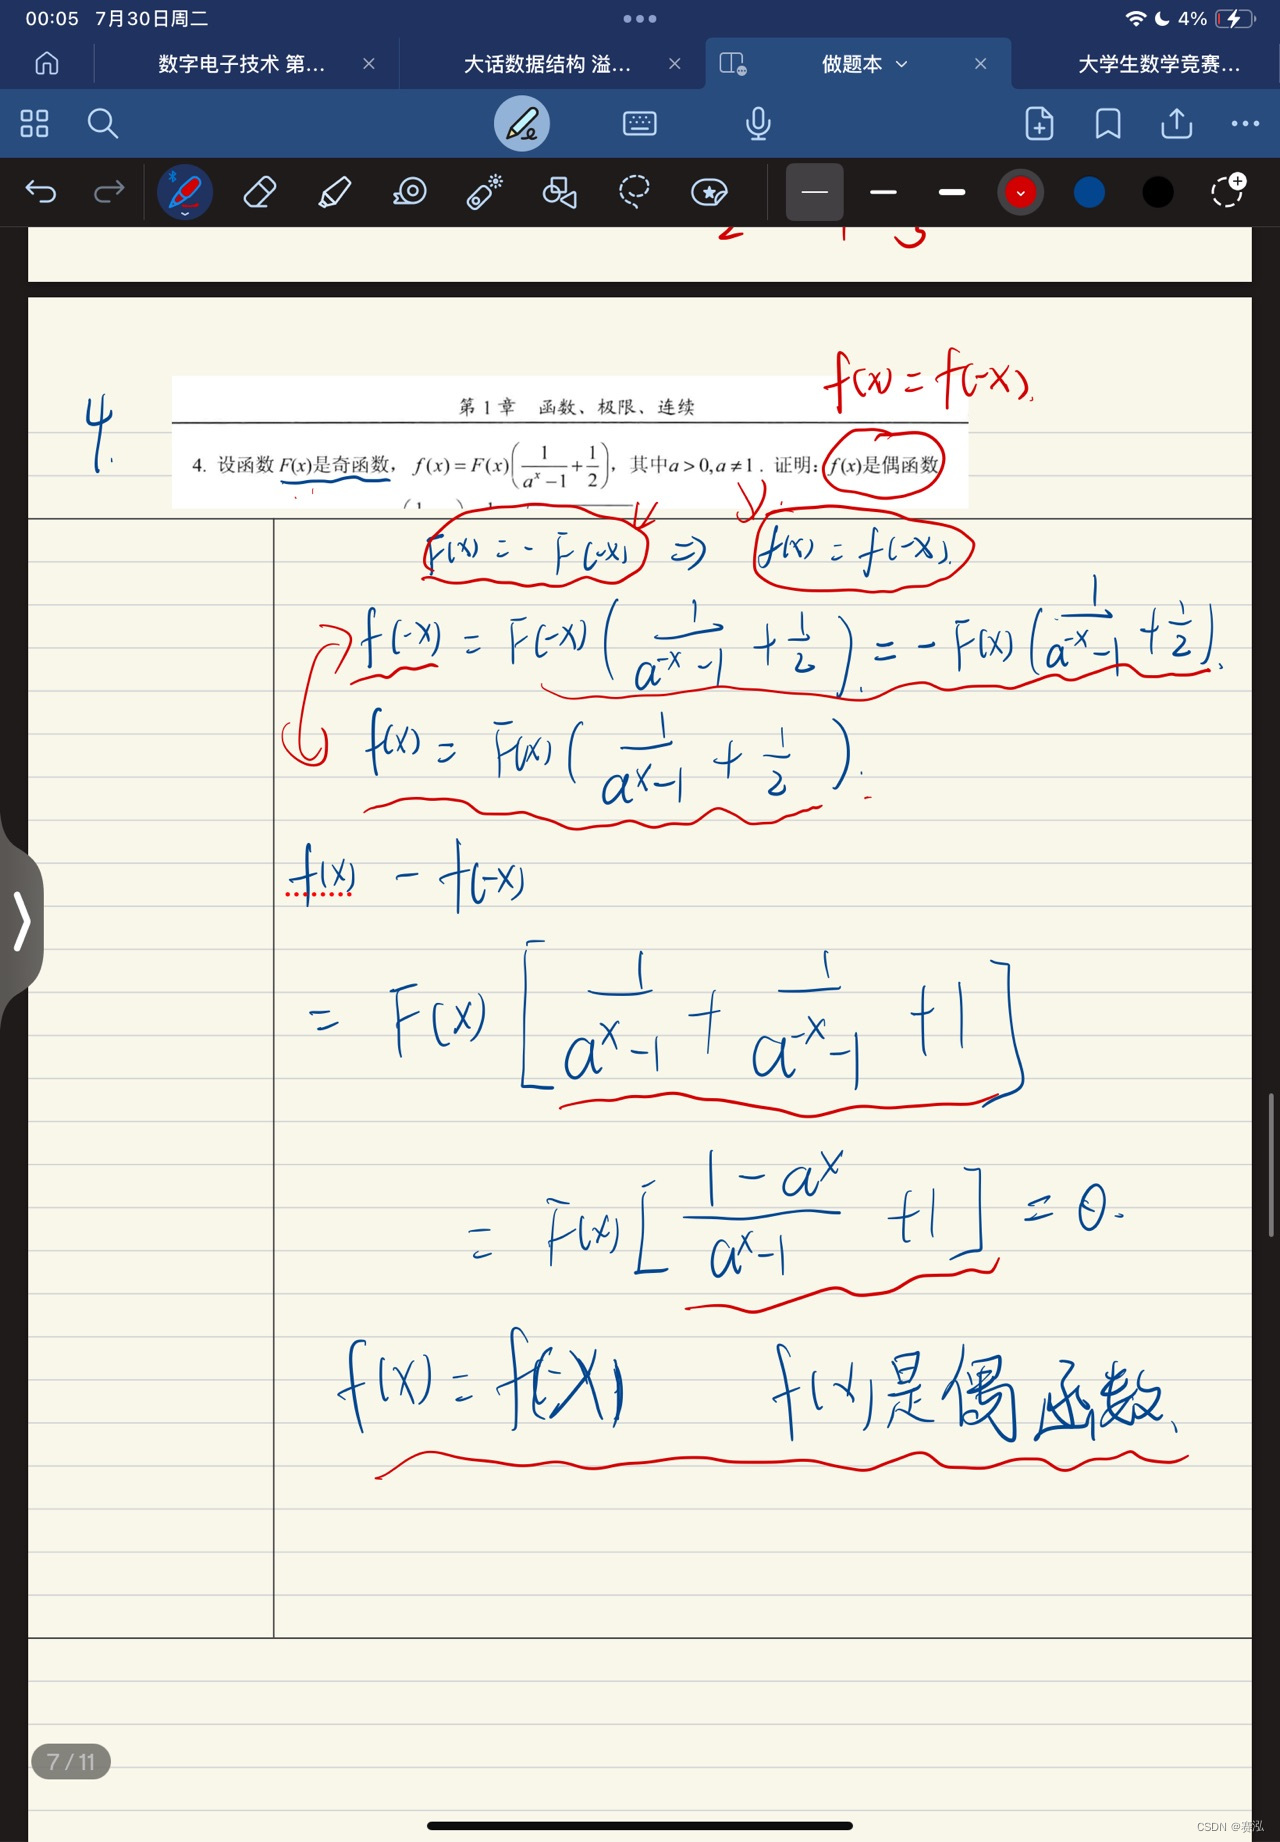 00:05 7月30日周二
4%
数字电子技术 第... × 大话数据结构 溢... × 做题本 × 大学生数学竞赛...
4.
f(x) = f(-x).
第 1 章 函数、极限、连续
4. 设函数 F(x)是奇函数, f(x)=F(x)(1/(a^x-1)+1/2), 其中a>0,a≠1. 证明: f(x)是偶函数
F(x) = - F(-x) ⇒ f(x) = f(-x).
f(-x) = F(-x) (1/(a^-x-1) + 1/2). = - F(x) (1/(a^-x-1) + 1/2).
f(x) = F(x) (1/(a^x-1) + 1/2).
f(x) - f(-x)
= F(x) [1/(a^x-1) + 1/(a^-x-1) +1]
= F(x) [(1-a^x)/(a^x-1) +1] = 0.
f(x) = f(-x) f(x)是偶函数.
7 / 11
CSDN @赛泓